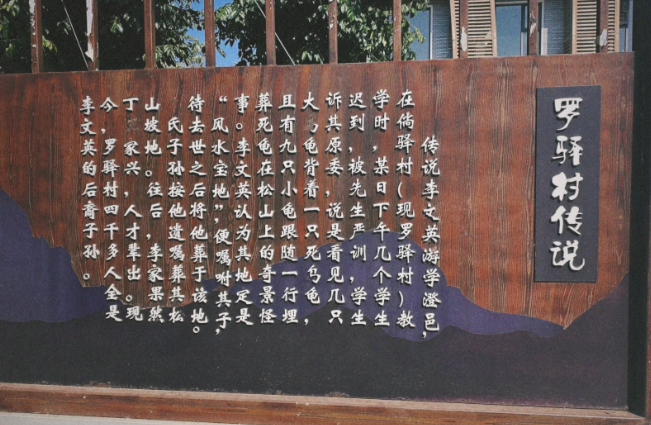 罗驿村传说
传说李文英游学澄邑，
在倘驿村（现罗驿村）教
学时，某日下午几个学生
迟到，被先生严训，学生
诉其原委，说是看见几只
大乌龟背着一只死乌龟，
且有九只小龟跟随一行埋
葬死龟在松山上的奇景怪
事。李文英认为其地定是
“风水宝地”，便嘱咐其子，
待去世之后将他葬于该地。
氏子孙按他遗嘱葬其松
山坡地。往后，李家果然
丁家兴，人才辈出。现
今，罗驿村四千多人全是
李文英的后裔子孙。